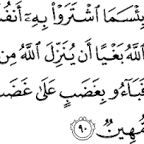 بِئْسَمَا ٱشْتَرَوْا۟ بِهِۦٓ أَنفُ
ٱللَّهُ بَغْيًا أَن يُنَزِّلَ ٱللَّهُ مِن
فَبَآءُو بِغَضَبٍ عَلَىٰ غَضَبٍ
مُّهِينٌ ٩٠